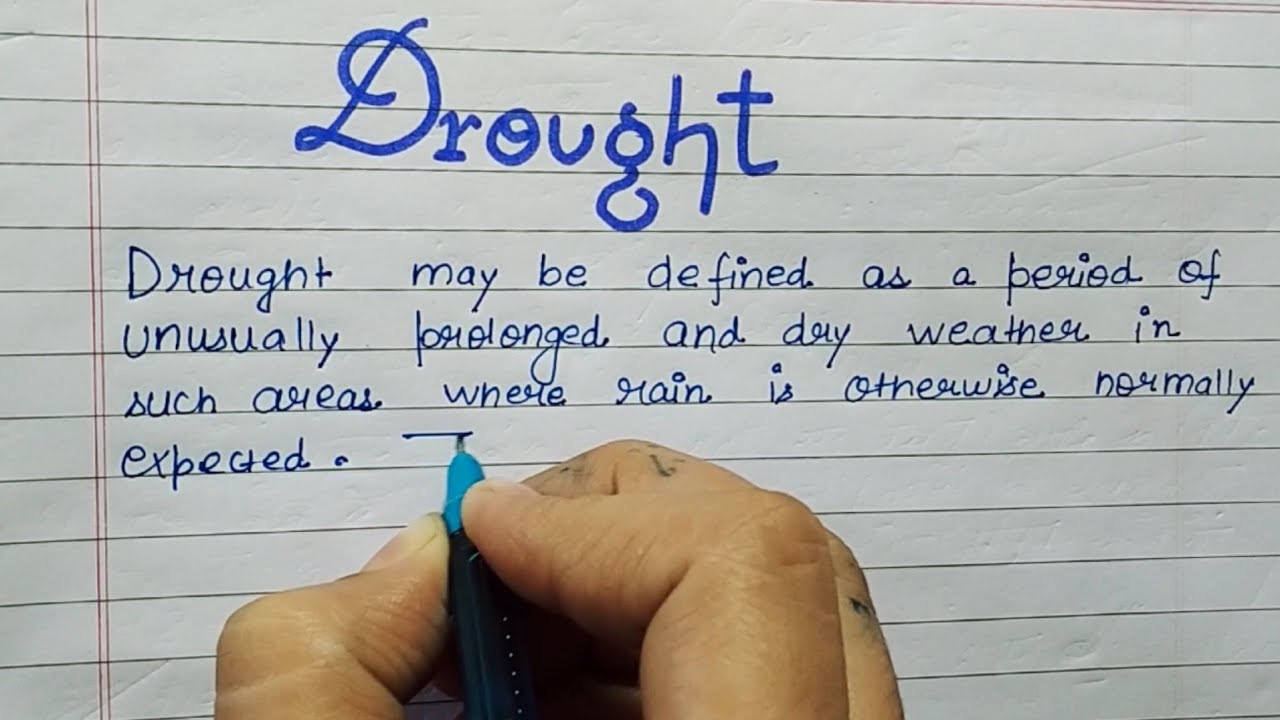 Drought
Drought may be defined as a period of
unusually prolonged and dry weather in
such areas where rain is otherwise normally
expected.